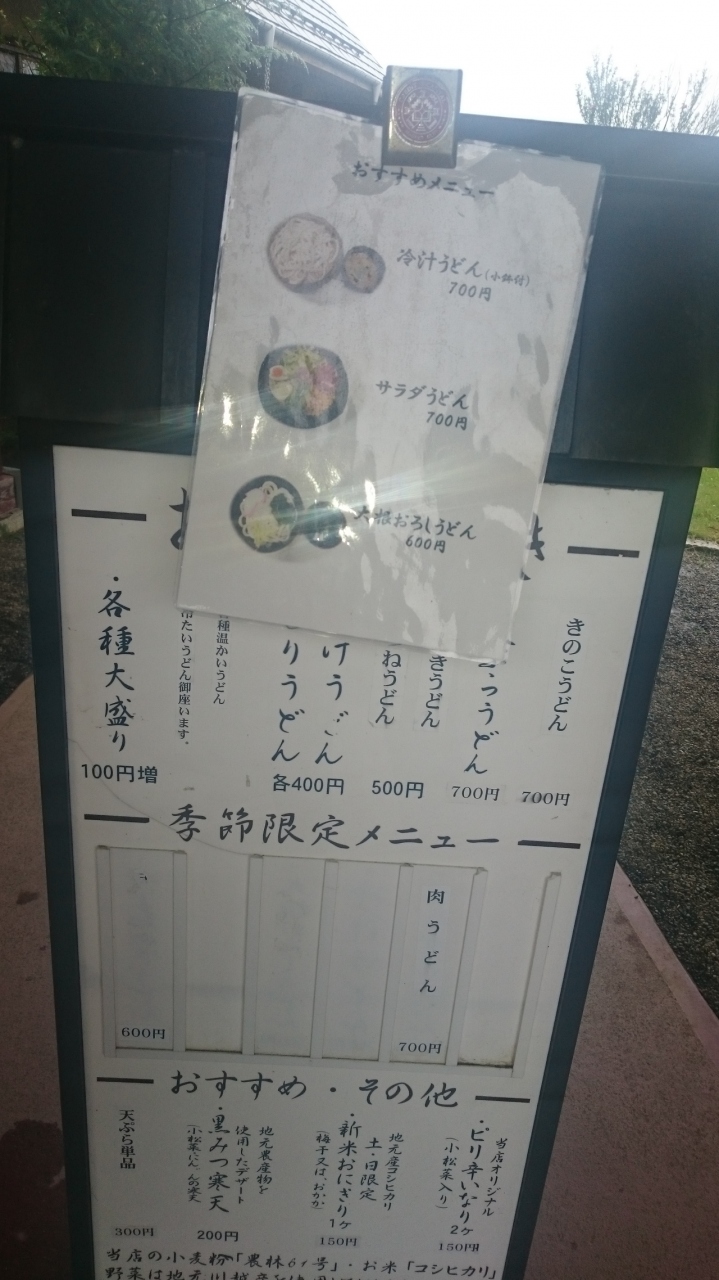 おすすめメニュー
冷汁うどん(小鉢付)
700円
サラダうどん
700円
大根おろしうどん
600円
きのこうどん
700円
うどん
700円
きうどん
ねうどん
500円
けうどん
りうどん
各400円
各種温かいうどん
冷たいうどん御座います。
・各種大盛り
100円増
季節限定メニュー
肉うどん
700円
600円
おすすめ・その他
当店オリジナル
・ピリ辛いなり2ケ
(小松菜入り)
150円
地元産コシヒカリ
土・日限定
・新米おにぎり1ケ
(梅干又は、おかか)
150円
地元農産物を
使用したデザート
・黒みつ寒天
200円
天ぷら単品
300円
当店の小麦粉「農林61号」・お米「コシヒカリ」
野菜は地元川越産を使用